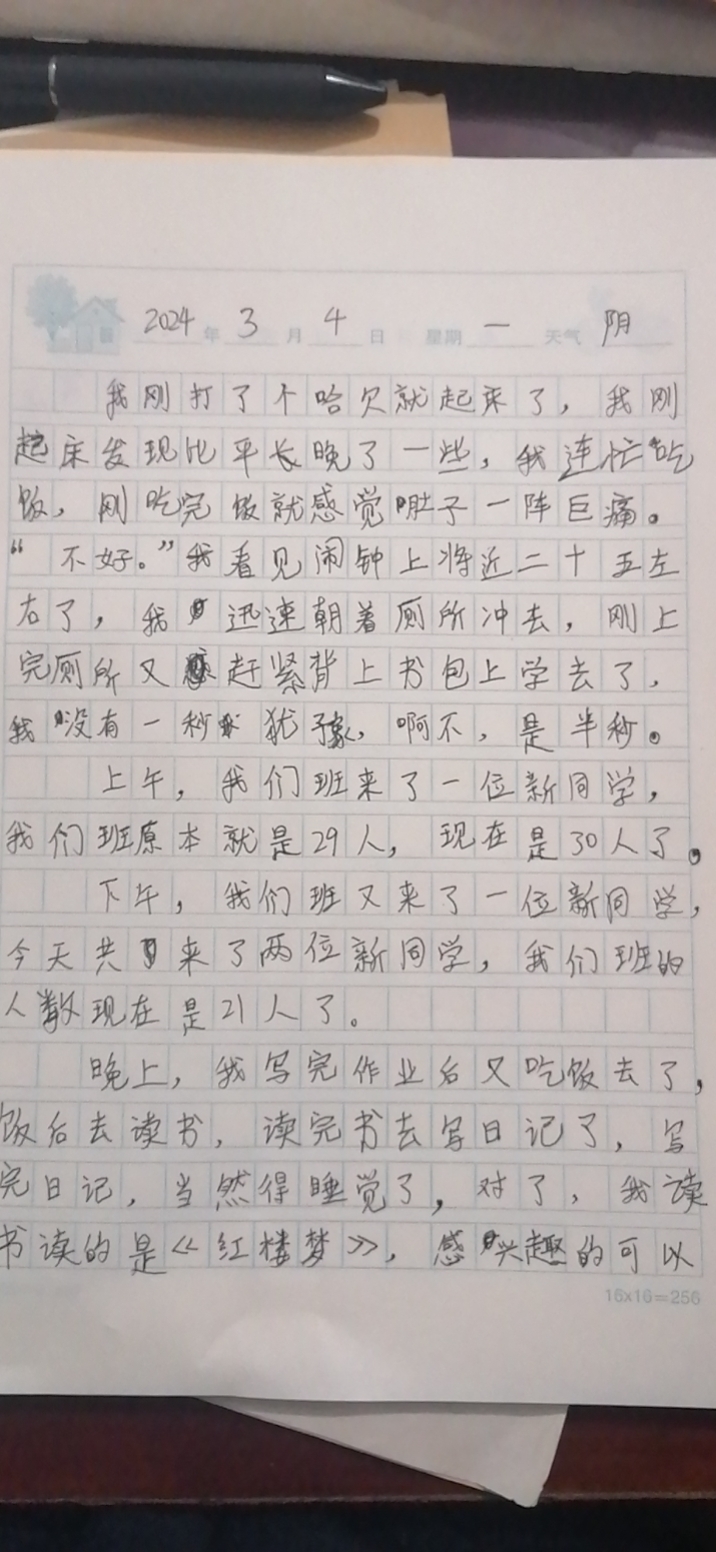 2024 年 3 月 4 日 星期 一 天气 阴
我刚打了个哈欠就起来了，我刚
起床发现比平长晚了一些，我连忙吃
饭，刚吃完饭就感觉肚子一阵巨痛。
“不好。”我看见闹钟上将近二十五左
右了，我迅速朝着厕所冲去，刚上
完厕所又赶紧背上书包上学去了，
我没有一秒犹豫，啊不，是半秒。
上午，我们班来了一位新同学，
我们班原本就是29人，现在是30人了。
下午，我们班又来了一位新同学，
今天共来了两位新同学，我们班的
人数现在是21人了。
晚上，我写完作业后又吃饭去了，
饭后去读书，读完书去写日记了，写
完日记，当然得睡觉了，对了，我读
书读的是《红楼梦》，感兴趣的可以
16x16=256